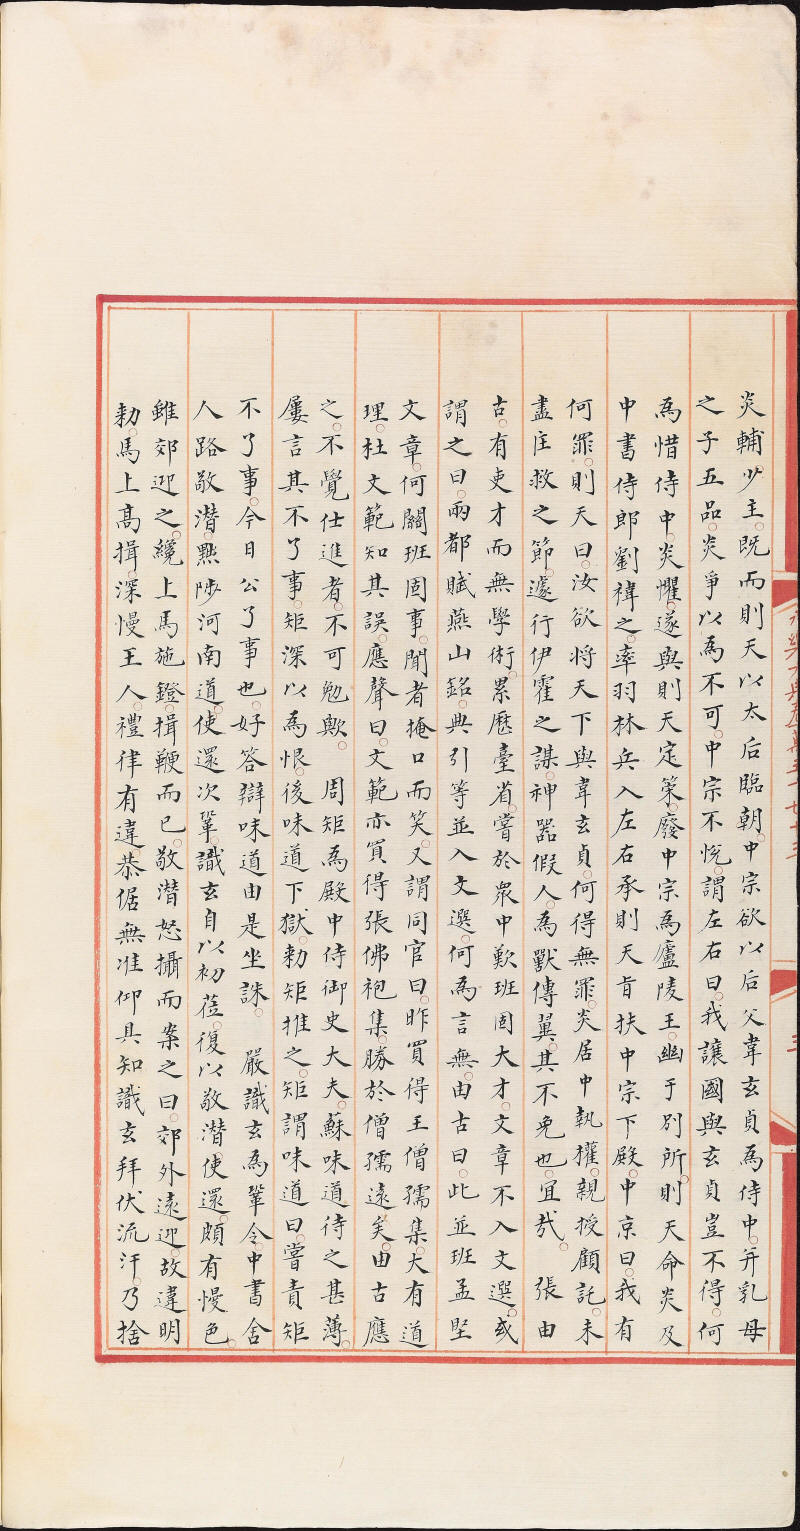 炎輔少主。既而則天以太后臨朝。中宗欲以后父韋玄貞為侍中。并乳母
之子五品。炎爭以為不可。中宗不悅。謂左右曰。我讓國與玄貞豈不得。何
為惜侍中。炎懼。遂與則天定策。廢中宗為廬陵王。幽于別所。則天命炎及
中書侍郎劉禕之。率羽林兵入左右承則天旨扶中宗下殿。中京曰。我有
何罪。則天曰。汝欲將天下與韋玄貞。何得無罪。炎居中執權。親授顧託。未
盡匡救之節。遽行伊霍之謀。神器假人。為獸傅翼。其不免也。宜㢤。 張由
古。有吏才而無學術。累歷臺省。嘗於眾中歎班固大才。文章不入文選。或
謂之曰。兩都賦燕山銘。典引等並入文選。何為言無。由古曰。此並班孟堅
文章。何關班固事。聞者掩口而笑。又謂同官曰。昨買得王僧孺集。大有道
理。杜文範知其誤。應聲曰。文範亦買得張佛袍集。勝於僧孺遠矣。由古應
之。不覺仕進者。不可勉歟。 周矩為殿中侍御史大夫。蘇味道待之甚薄。
屢言其不了事。矩深以為恨。後味道下獄。勑矩推之。矩謂味道曰。嘗責矩
不了事。今日公了事也。好答辯味道由是坐誅。 嚴識玄為鞏令。中書舍
人路敬潛。黜陟河南道。使還次鞏。識玄自以初莅。復以敬潛使還。頗有慢色。
雖郊迎之。纔上馬施鐙。揖鞭而已。敬潛怒攝而案之曰。郊外遠迎。故違明
勑。馬上高揖。深慢王人。禮律有違。恭倨無准仰具知識玄拜伏流汗。乃捨